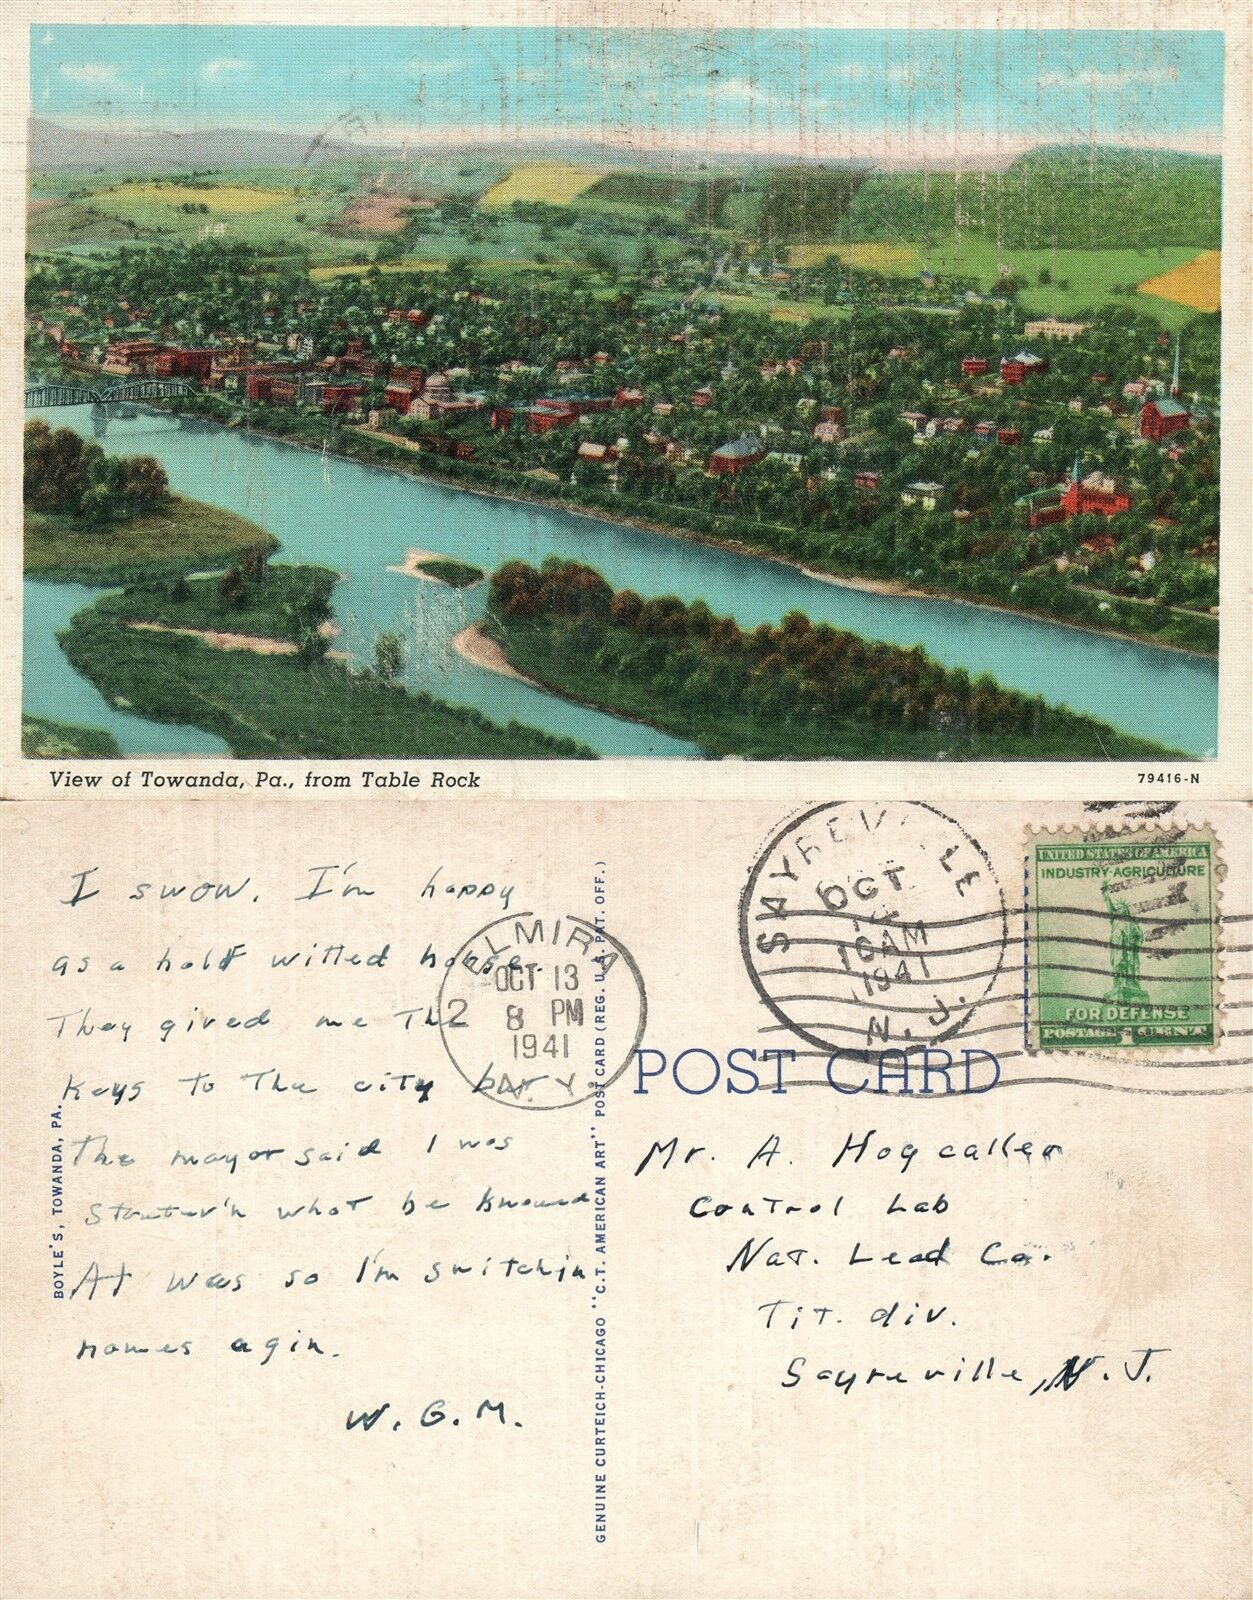 View of Towanda, Pa., from Table Rock
79416-N
I swow. I'm happy
as a half witted house.
They gived me The
Keys To The city but
The mayor said I was
what he knowed
At was so I'm switchin
homes agin.
W. G. M.
BOYLE'S, TOWANDA, PA.
ELMIRA
OCT 13
2 8 PM
1941
N.Y.
GENUINE CURTEICH-CHICAGO "C.T. AMERICAN ART" POST CARD (REG. U.S. PAT. OFF.)
SAYREVILLE
OCT
10AM
1941
N. J.
UNITED STATES OF AMERICA
INDUSTRY·AGRICULTURE
FOR DEFENSE
POSTAGE 1 CENT
POST CARD
Mr. A. Hogcaller
Control Lab
Nat. Lead Co.
Tit. div.
Sayreville, N. J.